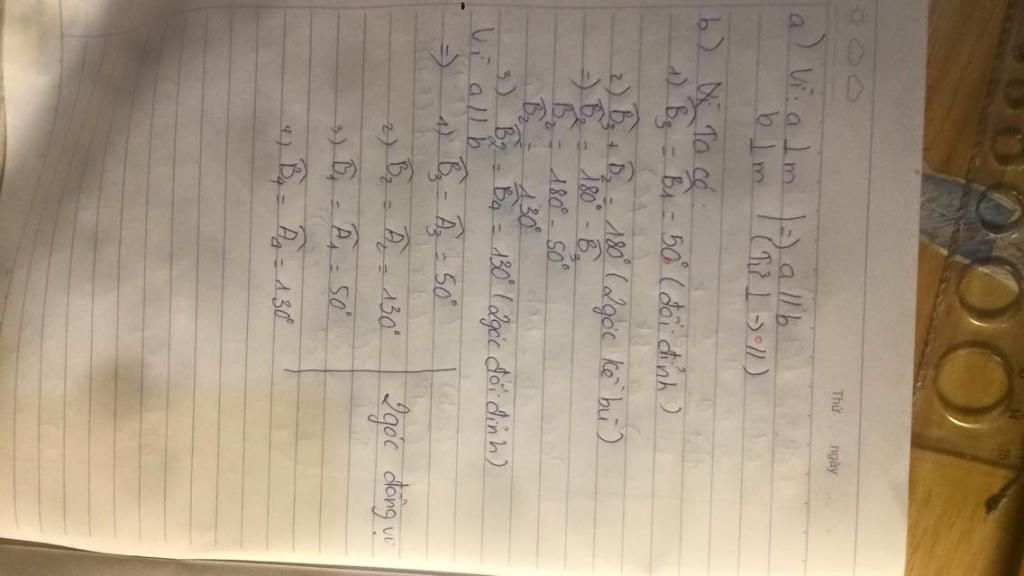 Thứ ngày
a) Vì: a ⊥ m | =) a // b
b ⊥ m | (T/c ⊥ → //)
b) Ta có:
1) B̂₃ = B̂₁ = 50° (đối đỉnh)
2) B̂₃ + B̂₂ = 180° (2 góc kề bù)
=) B̂₂ = 180° - B̂₃
B̂₂ = 180° - 50°
B̂₂ = 130°
3) B̂₂ = B̂₄ = 130° (2 góc đối đỉnh)
Vì a // b
=) 1) B̂₃ = Â₃ = 50°
2) B̂₂ = Â₂ = 130°
3) B̂₁ = Â₁ = 50°
4) B̂₄ = Â₄ = 130°
2 góc đồng vị